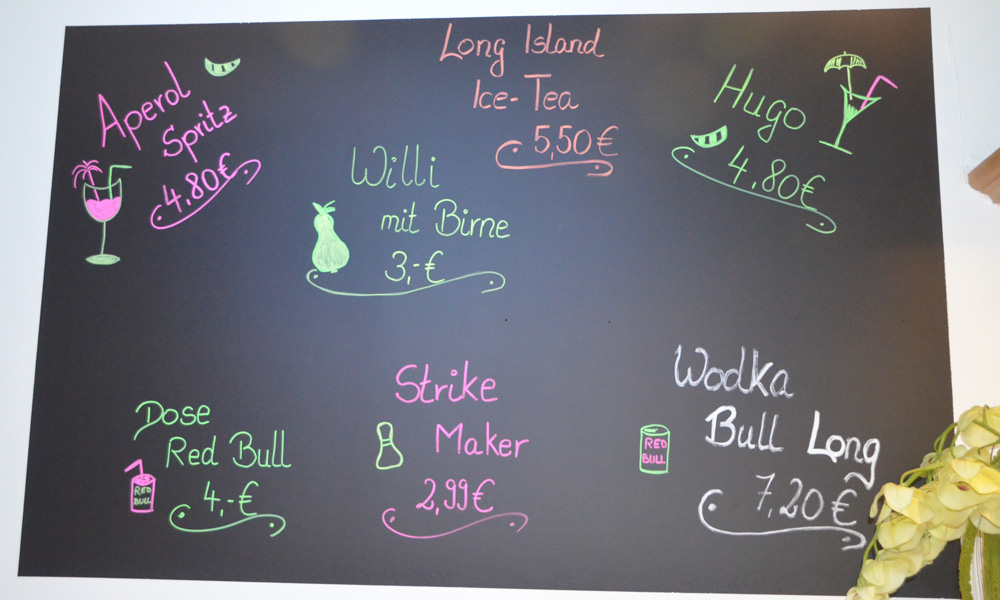 Long Island
Ice-Tea
5,50€
Aperol
Spritz
4,80€
Hugo
4,80€
Willi
mit Birne
3,-€
Dose
Red Bull
4,-€
RED
BULL
Strike
Maker
2,99€
Wodka
Bull Long
7,20€
RED
BULL